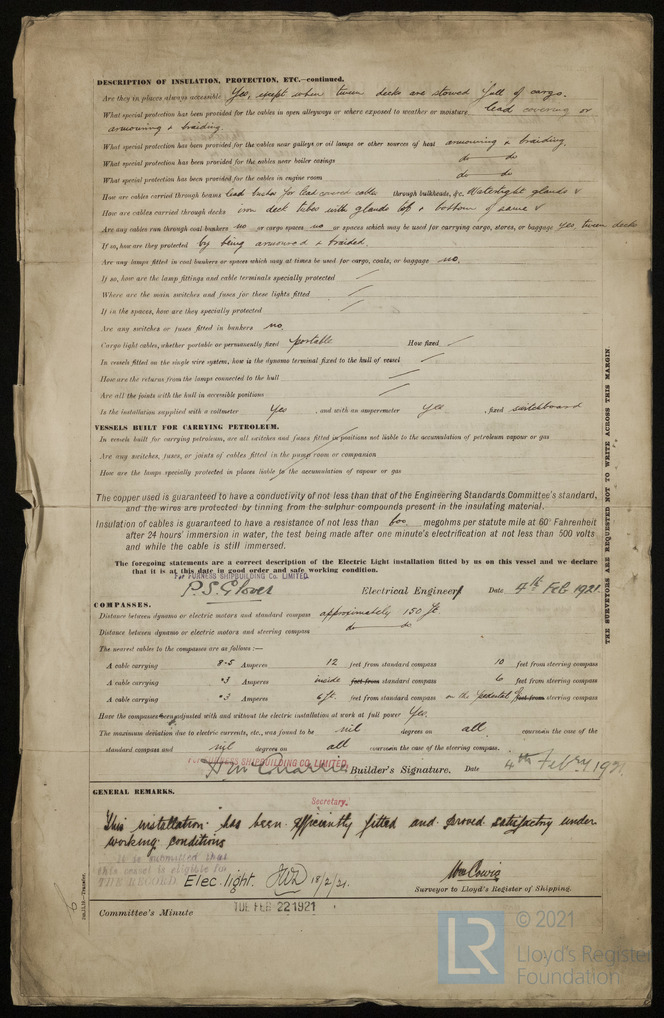 DESCRIPTION OF INSULATION, PROTECTION, ETC.—continued.
Are they in places always accessible Yes, except when tween decks are stowed full of cargo.
What special protection has been provided for the cables in open alleyways or where exposed to weather or moisture lead covering or
armouring & braiding
What special protection has been provided for the cables near galleys or oil lamps or other sources of heat armouring & braiding.
What special protection has been provided for the cables near boiler casings do do
What special protection has been provided for the cables in engine room do do
How are cables carried through beams lead bushes for lead covered cables through bulkheads, &c. Watertight glands
How are cables carried through decks iron deck tubes with glands top & bottom of same
Are any cables run through coal bunkers no or cargo spaces no or spaces which may be used for carrying cargo, stores, or baggage yes, tween decks
If so, how are they protected by being armoured & braided.
Are any lamps fitted in coal bunkers or spaces which may at times be used for cargo, coals, or baggage no.
If so, how are the lamp fittings and cable terminals specially protected
Where are the main switches and fuses for these lights fitted
If in the spaces, how are they specially protected
Are any switches or fuses fitted in bunkers no
Cargo light cables, whether portable or permanently fixed portable How fixed
In vessels fitted on the single wire system, how is the dynamo terminal fixed to the hull of vessel
How are the returns from the lamps connected to the hull
Are all the joints with the hull in accessible positions
Is the installation supplied with a voltmeter Yes , and with an amperemeter yes , fixed switchboard
VESSELS BUILT FOR CARRYING PETROLEUM.
In vessels built for carrying petroleum, are all switches and fuses fitted in positions not liable to the accumulation of petroleum vapour or gas
Are any switches, fuses, or joints of cables fitted in the pump room or companion
How are the lamps specially protected in places liable to the accumulation of vapour or gas
The copper used is guaranteed to have a conductivity of not less than that of the Engineering Standards Committee's standard,
and the wires are protected by tinning from the sulphur compounds present in the insulating material.
Insulation of cables is guaranteed to have a resistance of not less than 600 megohms per statute mile at 60° Fahrenheit
after 24 hours' immersion in water, the test being made after one minute's electrification at not less than 500 volts
and while the cable is still immersed.
The foregoing statements are a correct description of the Electric Light installation fitted by us on this vessel and we declare
that it is at this date in good order and safe working condition.
For FURNESS SHIPBUILDING Co. LIMITED.
P.S. Glover Electrical Engineer Date 4th Feb 1921.
COMPASSES.
Distance between dynamo or electric motors and standard compass approximately 150 ft.
Distance between dynamo or electric motors and steering compass do do
The nearest cables to the compasses are as follows:—
A cable carrying 8.5 Amperes 12 feet from standard compass 10 feet from steering compass
A cable carrying .3 Amperes inside feet from standard compass 6 feet from steering compass
A cable carrying .3 Amperes 6 ft. feet from standard compass on the pedestal feet from steering compass
Have the compasses been adjusted with and without the electric installation at work at full power Yes.
The maximum deviation due to electric currents, etc., was found to be nil degrees on all course in the case of the
standard compass and nil degrees on all course in the case of the steering compass.
For FURNESS SHIPBUILDING CO. LIMITED.
Builder's Signature. Date 4th Febry 1921
Secretary.
GENERAL REMARKS.
This installation has been efficiently fitted and proved satisfactory under
working conditions
It is submitted that
this vessel is eligible for
THE RECORD Elec. light. 18/2/21.
Wm Cowie
Surveyor to Lloyd's Register of Shipping.
Committee's Minute TUE FEB 22 1921
THE SURVEYORS ARE REQUESTED NOT TO WRITE ACROSS THIS MARGIN
LR
© 2021
Lloyd's Register
Foundation